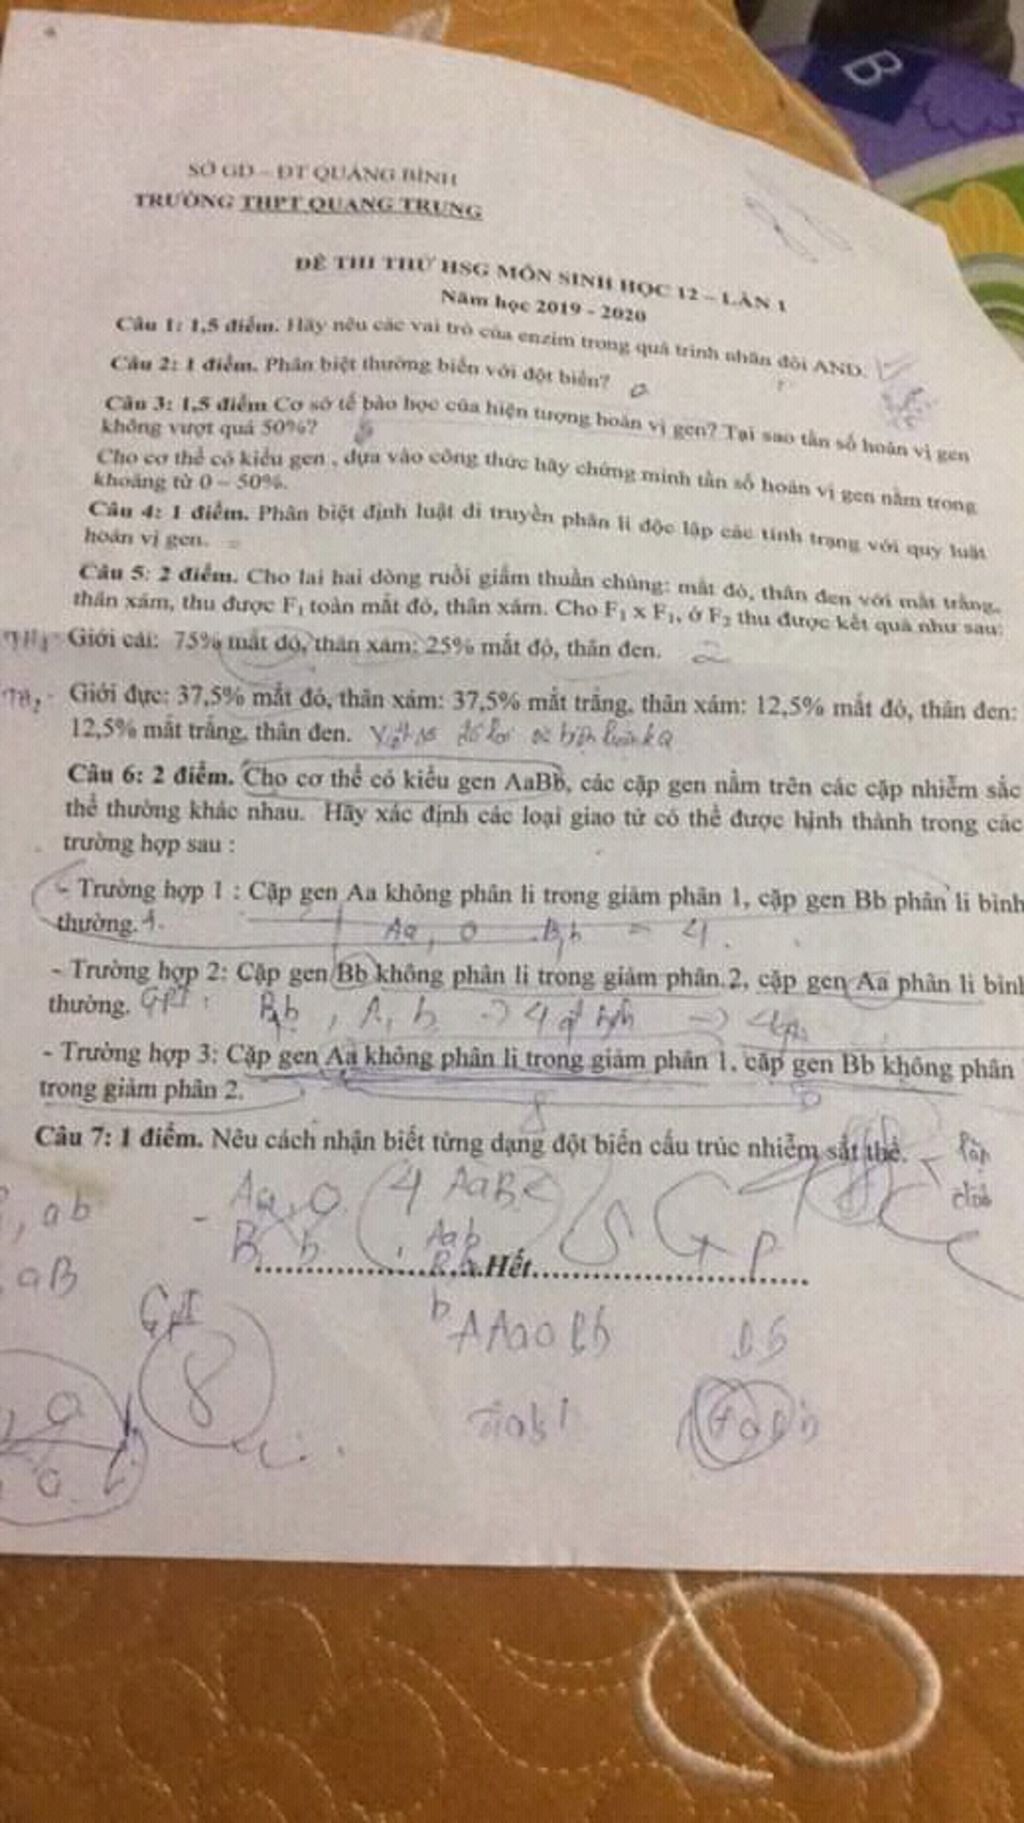 B
SỞ GD – ĐT QUẢNG BÌNH
TRƯỜNG THPT QUANG TRUNG
ĐỀ THI THỬ HSG MÔN SINH HỌC 12 – LẦN 1
Năm học 2019 - 2020
Câu 1: 1,5 điểm. Hãy nêu các vai trò của enzim trong quá trình nhân đôi AND.
Câu 2: 1 điểm. Phân biệt thường biến với đột biến?
Câu 3: 1,5 điểm Cơ sở tế bào học của hiện tượng hoán vị gen? Tại sao tần số hoán vị gen
không vượt quá 50%?
Cho cơ thể có kiểu gen , dựa vào công thức hãy chứng minh tần số hoán vị gen nằm trong
khoảng từ 0 – 50%.
Câu 4: 1 điểm. Phân biệt định luật di truyền phân li độc lập các tính trạng với quy luật
hoán vị gen.
Câu 5: 2 điểm. Cho lai hai dòng ruồi giấm thuần chủng: mắt đỏ, thân đen với mắt trắng,
thân xám, thu được F1 toàn mắt đỏ, thân xám. Cho F1 x F1, ở F2 thu được kết quả như sau:
Giới cái: 75% mắt đỏ, thân xám: 25% mắt đỏ, thân đen. 2
Giới đực: 37,5% mắt đỏ, thân xám: 37,5% mắt trắng, thân xám: 12,5% mắt đỏ, thân đen:
12,5% mắt trắng, thân đen.
Câu 6: 2 điểm. Cho cơ thể có kiểu gen AaBb, các cặp gen nằm trên các cặp nhiễm sắc
thể thường khác nhau. Hãy xác định các loại giao tử có thể được hình thành trong các
trường hợp sau :
- Trường hợp 1 : Cặp gen Aa không phân li trong giảm phân 1, cặp gen Bb phân li bình
thường.
Aa, 0 B, b = 4.
- Trường hợp 2: Cặp gen Bb không phân li trong giảm phân 2, cặp gen Aa phân li bình
thường.
- Trường hợp 3: Cặp gen Aa không phân li trong giảm phân 1, cặp gen Bb không phân
trong giảm phân 2.
8
Câu 7: 1 điểm. Nêu cách nhận biết từng dạng đột biến cấu trúc nhiễm sắt thể.
, ab
Aa, 0
4
B b
Aab
aB
Hết
8